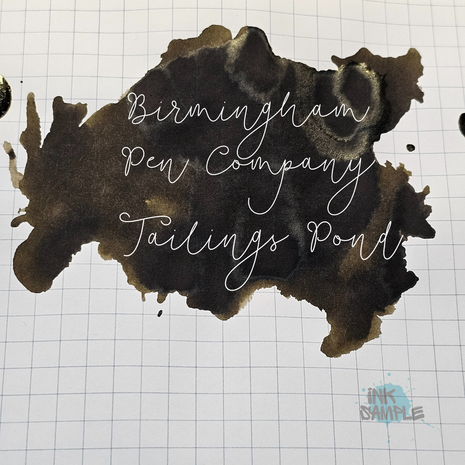 Birmingham
Pen Company
Tailings Pond
INK
SAMPLE